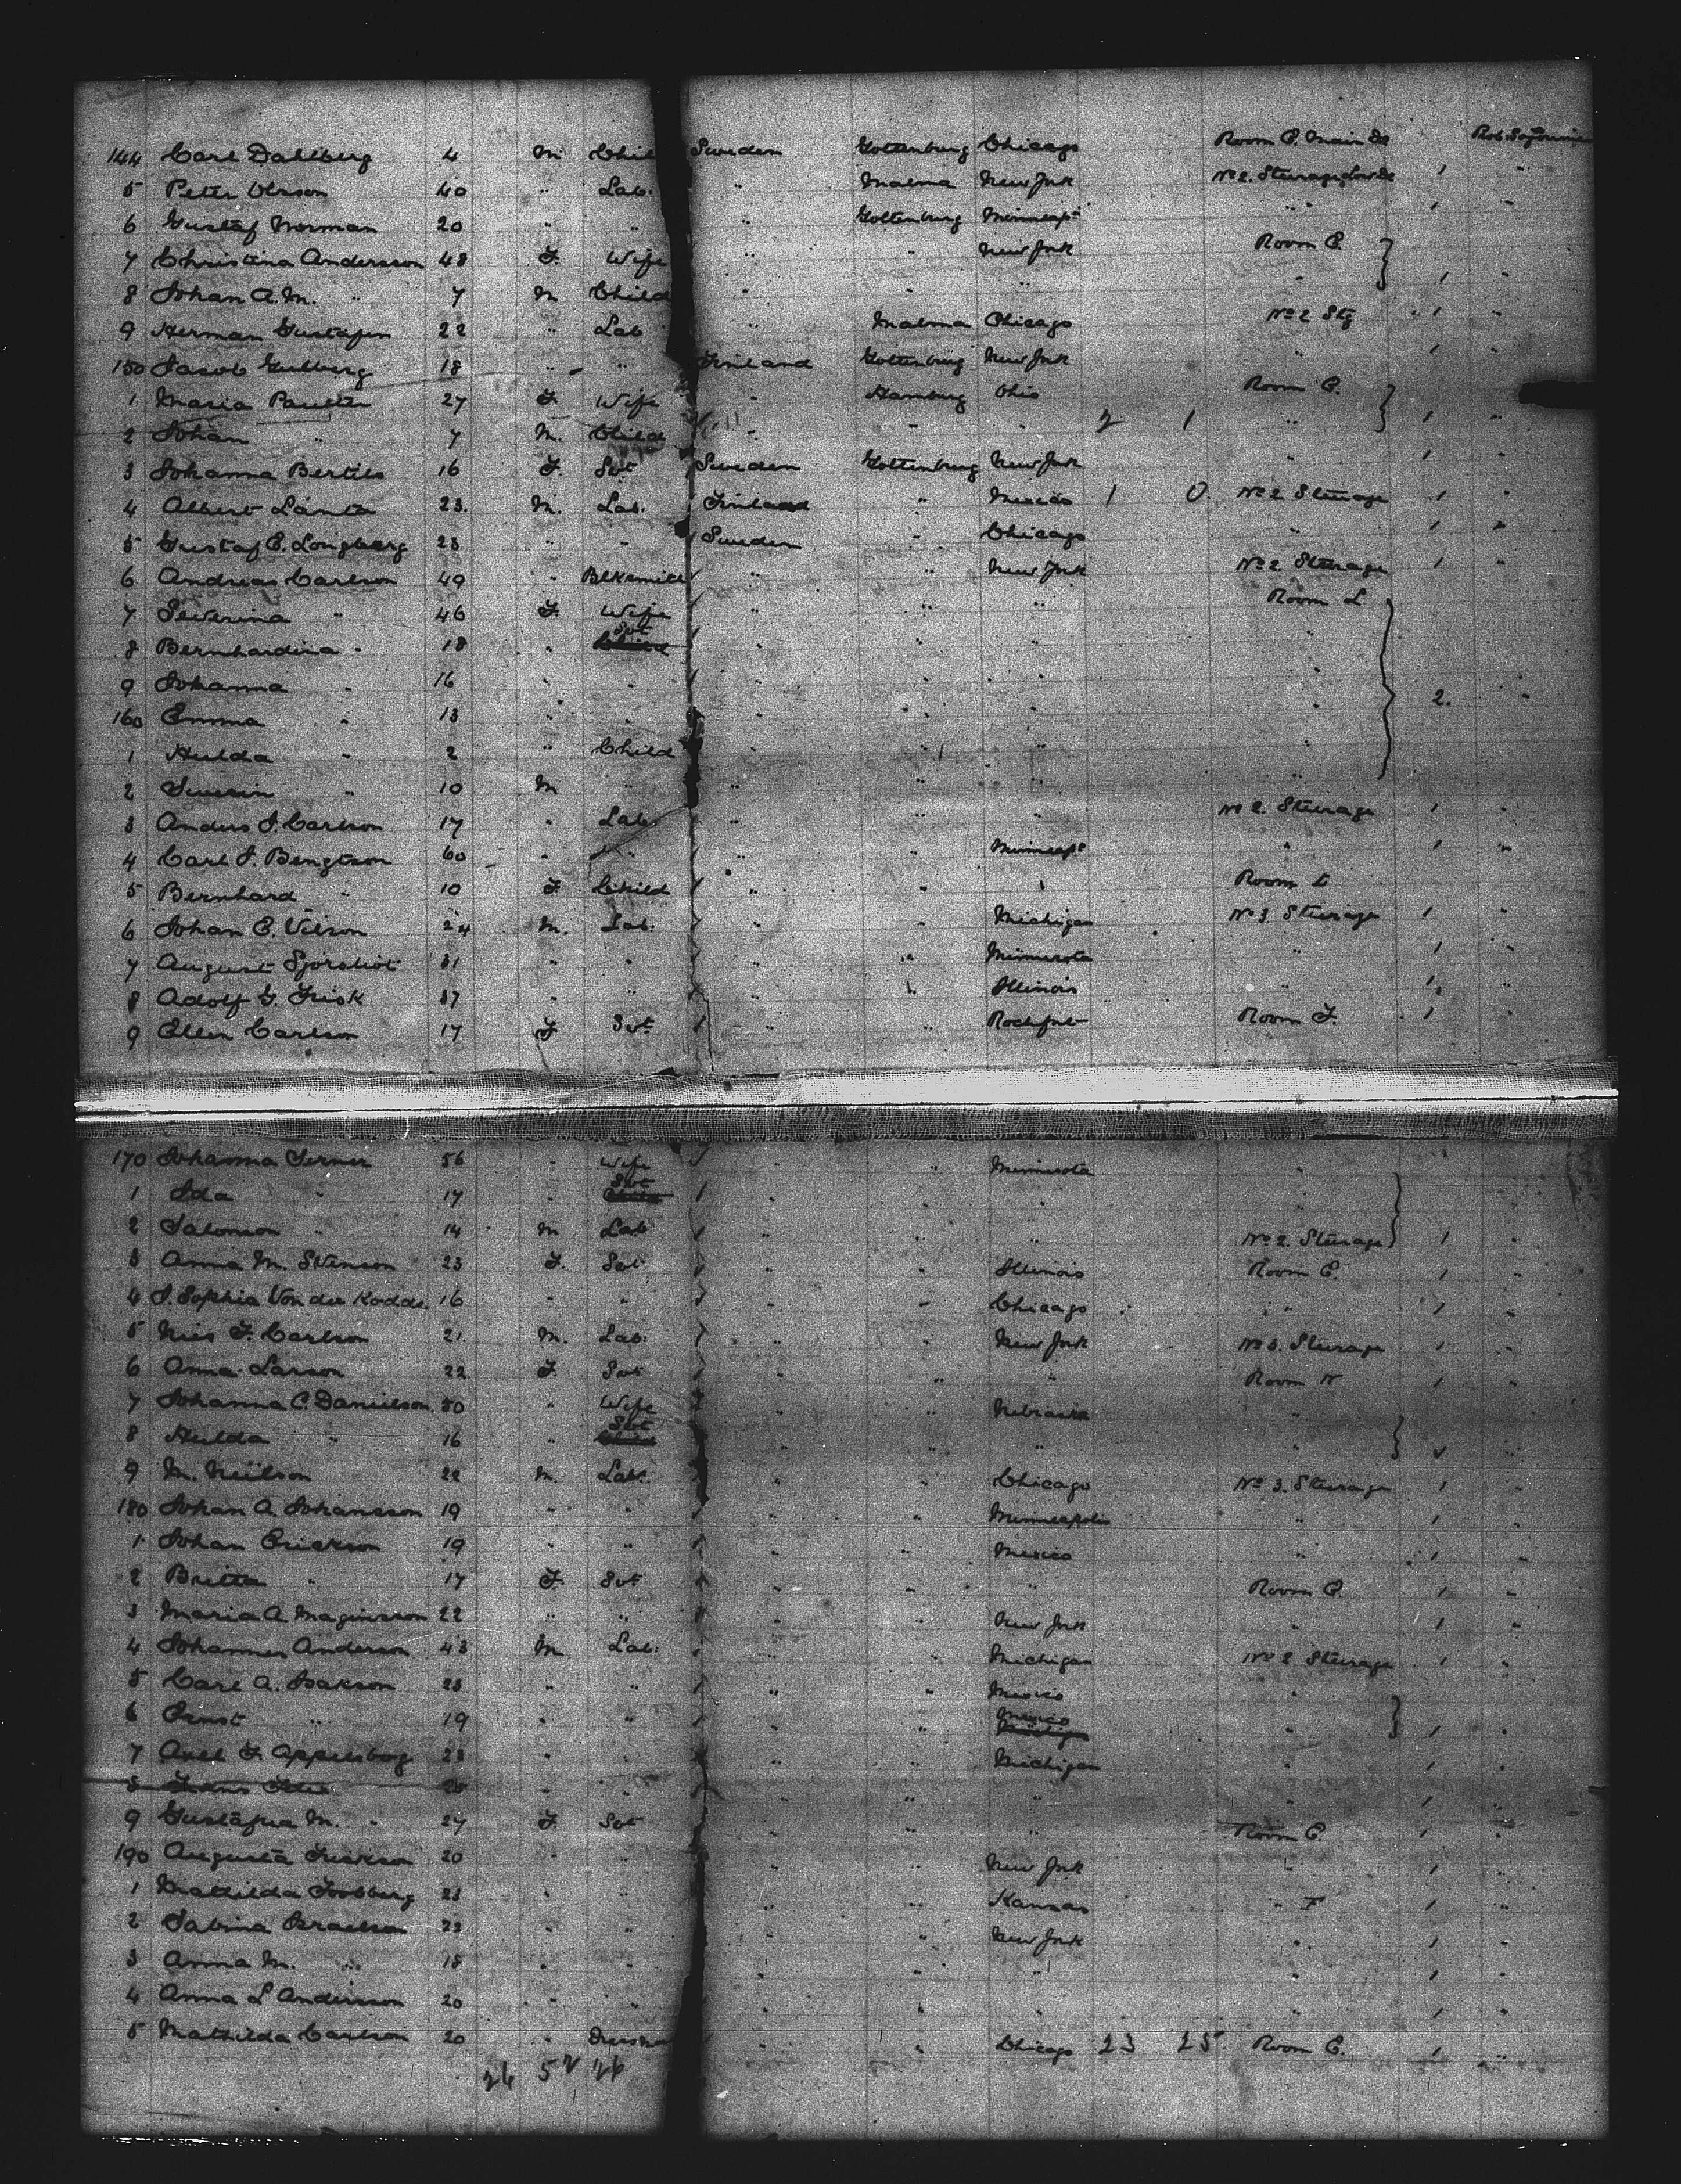 144 Carl Dahlberg 4 M Chil Sweden Gottenburg Chicago Room C. Main De
5 Peter Olsson 40 " Lab. " Malma New York No 2. Steerage Low De 1 "
6 Gustaf Norman 20 " " " Gottenburg Minneaps " " 1 "
7 Christina Andersson 48 F. Wife " " New York Room C.
8 Johan A. M. " 7 M Child " " " " 1 "
9 Herman Gustafsen 22 " Lab " Malma Chicago No 2 Stg 1 "
150 Jacob Gulberg 18 " " Finland Gottenburg New York " 1 "
1 Maria 27 F. Wife " Hamburg Ohio Room C.
2 Johan " 7 M. Child " " " 2 1 " 1 "
3 Johanna Bertils 16 F. Svt Sweden Gottenburg New York " 1 "
4 Albert 23. M. Lab. Finland " Mexico 1 0 No 2 Steerage 1 "
5 Gustaf C. Longberg 23 " " Sweden " Chicago " 1 "
6 Andreas Carlson 49 " Blksmith " " New York No 2 Steerage 1 "
7 Severina " 46 F. Wife " " " Room L
8 Bernhardina " 18 " Svt " " " "
9 Johanna " 16 " " " " " "
160 Emma " 13 " " " " " " 2. "
1 Hulda " 2 " Child " " " "
2 " 10 M " " " " "
3 Anders J. Carlson 17 " Lab. " " " No 2. Steerage 1 "
4 Carl J. Bengtson 60 " " " " Minneaps " 1 "
5 Bernhard " 10 F. Child " " " Room L
6 Johan E. 24 M. Lab. " " Michigan No 3. Steerage 1 "
7 August 31 " " " " Minnesota " 1 "
8 Adolf G. Frisk 37 " " " " Illinois " 1 "
9 Ellen Carlson 17 F Svt " " Room F. 1 "
170 Johanna 56 " Wife " " Minnesota "
1 Ida " 17 " Svt " " " "
2 Salomon " 14 M Lab " " " No 2. Steerage 1 "
3 Anna M. Svenson 23 F. Svt " " Illinois Room C. 1 "
4 J. Sophia Von der 16 " " " " Chicago " 1 "
5 F. Carlson 21 M. Lab. " " New York No 3. Steerage 1 "
6 Anna Larson 22 F Svt " " " Room N 1 "
7 Johanna C. Danielson 50 " Wife " " Nebraska "
8 Hulda " 16 " Svt " " " "
9 M. Neilson 22 M. Lab. " " Chicago No 3. Steerage 1 "
180 Johan A. Johansson 19 " " " " Minneapolis " 1 "
1 Johan Erickson 19 " " " " Mexico " 1 "
2 Britta " 17 F. Svt " " " Room C. 1 "
3 Maria A. Maginsson 22 " " " " New York " 1 "
4 Johannes Anderson 43 M Lab. " " Michigan No 2 Steerage 1 "
5 Carl A. Isakson 23 " " " " Mexico "
6 Ernst " 19 " " " " Mexico " 1 "
7 Axel F. Appelsberg 23 " " " " Michigan " 1 "
8 " " " " " " 1 "
9 M. " 27 F. Svt " " " Room C. 1 "
190 Augusta 20 " " " " New York " 1 "
1 Mathilda 23 " " " " Kansas " F 1 "
2 Sabina 22 " " " " New York " 1 "
3 Anna M. " 18 " " " " " " 1 "
4 Anna L Andersson 20 " " " " " " 1 "
5 Mathilda Carlson 20 " " " Chicago 23 25 Room C. 1 "
26 52 26